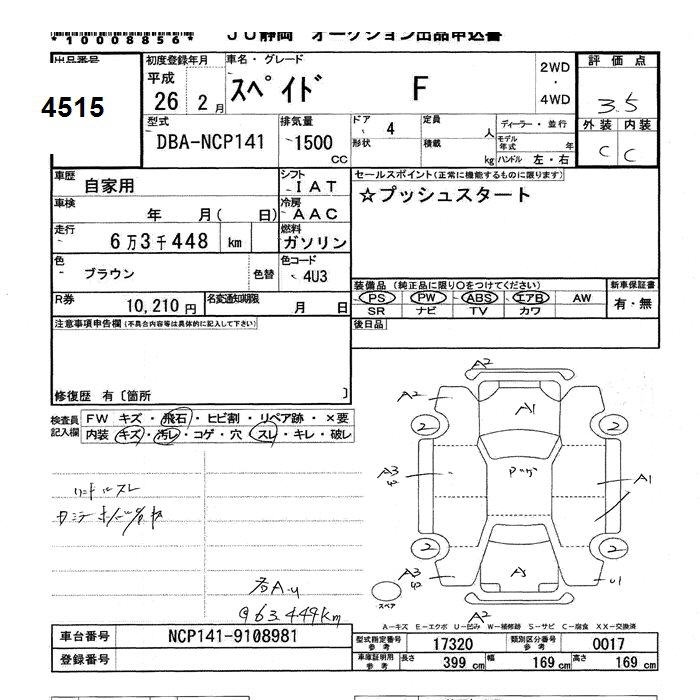 *10008856*
JU静岡 オークション出品申込書
出品番号
4515
初度登録年月
平成
26 2月
車名・グレード
スペイド F
2WD
・
4WD
評価点
3.5
外装 内装
C C
型式
DBA-NCP141
排気量
1500
CC
ドア
4
形状
定員
人
積載
kg
ディーラー・並行
モデル年式 年
ハンドル 左・右
車歴
自家用
シフト
IAT
車検
年 月( 日)
冷房
AAC
走行
6万3千448 km
燃料
ガソリン
色
ブラウン
色替
色コード
4U3
R券
10,210円
名変通知期限
月 日
セールスポイント(正常に機能するものに限ります)
☆プッシュスタート
装備品(純正品に限り○をつけてください)
新車保証書
PS PW ABS エアB AW
SR ナビ TV カワ
有・無
後日品
注意事項申告欄(不具合内容等は具体的に記入して下さい)
修復歴 有〔箇所 〕
検査員
記入欄
FW キズ・飛石・ヒビ割・リペア跡・×要
内装 キズ・汚レ・コゲ・穴・スレ・キレ・破レ
A-u
@63.449km
A2
A2
A1
2
2
A3
A1
2
2
A3
U1
A2
スペア
A-キズ E-エクボ U-凹み W-補修跡 S-サビ C-腐食 XX-交換済
車台番号
NCP141-9108981
登録番号
型式指定番号
参考
17320
類別区分番号
参考
0017
車庫証明用
参考
長さ 399cm 幅 169cm 高さ 169cm